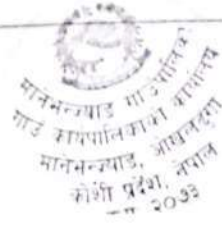 मानेभन्ज्याङ गाउँपालिका
गाउँ कार्यपालिकाको कार्यालय
मानेभन्ज्याङ, ओखलढुंगा
कोशी प्रदेश, नेपाल
२०७३